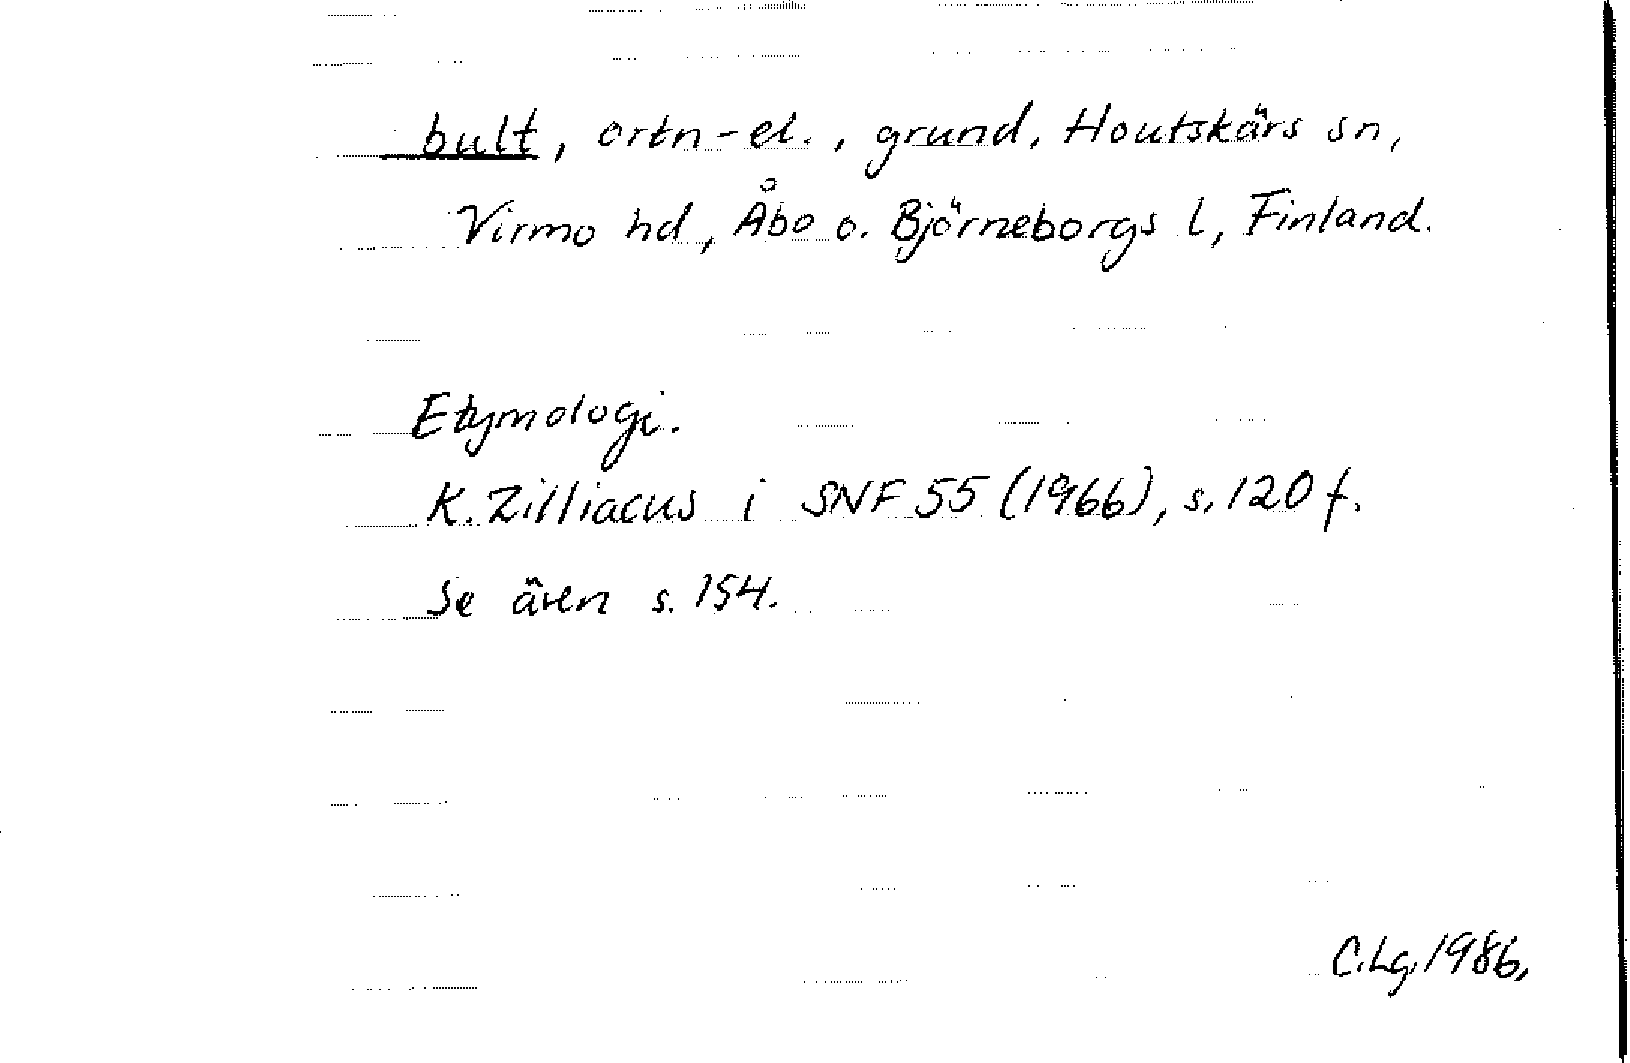 bult, ortn-el., grund, Houtskärs sn,
Virmo hd, Åbo o. Björneborgs l, Finland.
Etymologi.
K. Zilliacus i SNF 55 (1966), s. 120 f.
Se även s. 154.
C.Lg. 1986.